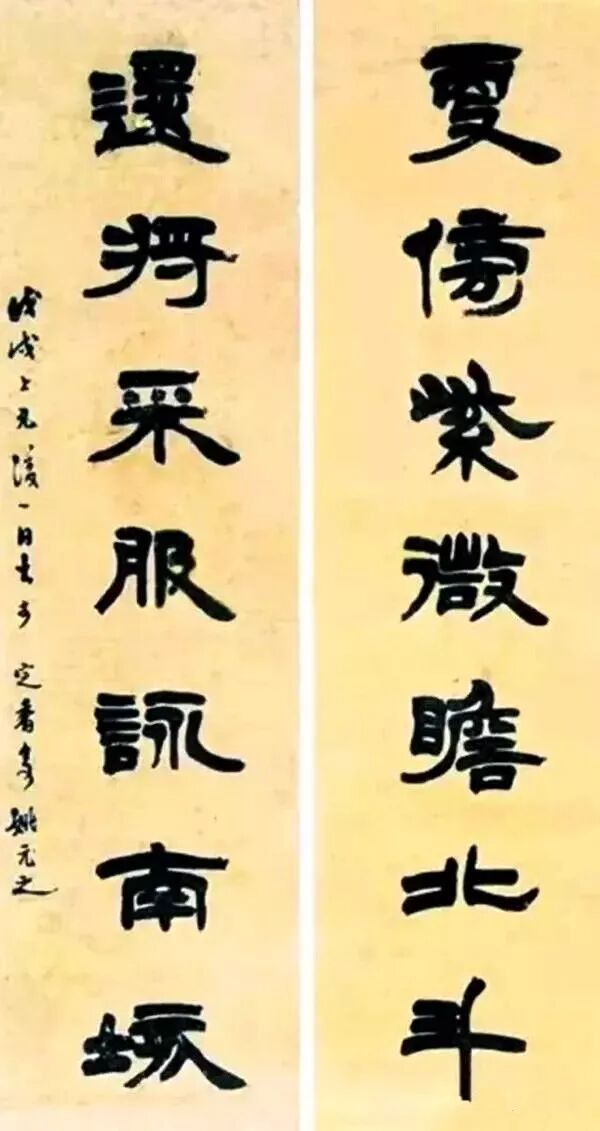 更傍紫微瞻北斗
還將采服詠南垓
戊戌上元後一日書於定香亭 姚元之